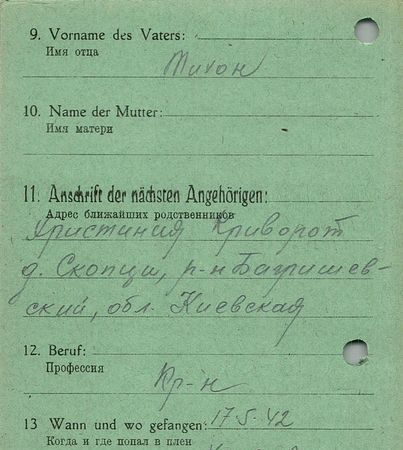 9. Vorname des Vaters:
Имя отца
Тихон
10. Name der Mutter:
Имя матери
11. Anschrift der nächsten Angehörigen:
Адрес ближайших родственников
Христиния Криворот
д. Скопци, р-н Баришев-
ский, обл. Киевская
12. Beruf:
Профессия
Кр-н
13 Wann und wo gefangen: 17-5-42
Когда и где попал в плен